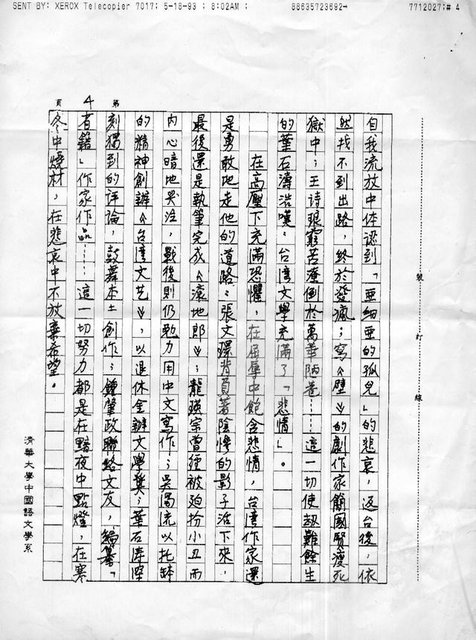 SENT BY: XEROX Telecopier 7017; 5-18-93 ; 8:02AM ; 88635723692→ 7712027;# 4
第 4 頁
裝 訂 線
自我流放中体認到「亜細亜的孤兒」的悲哀,返台後,依
然找不到出路,終於發瘋;寫《壁》的劇作家簡國賢瘦死
獄中;王詩琅窮苦潦倒於萬華陋巷……這一切使劫難餘生
的葉石濤浩嘆:台湾文學充滿了「悲情」。
在高壓下充滿恐懼,在屈辱中飽含悲情,台湾作家還
是勇敢地走他的道路:張文環背負著陰慘的影子活下來,
最後還是執筆完成《滾地郎》;龍瑛宗曾經被迫扮小丑而
內心暗地哭泣,戰後則仍勉力用中文寫作;吳濁流以托缽
的精神創辦《台湾文艺》,以退休金辦文學獎;葉石濤深
刻獨到的評論,鼓舞本土創作;鍾肇政聯絡文友,編纂「
者籍」作家作品……這一切努力都是在黯夜中點燈,在寒
冬中燒材,在悲哀中不放棄希望。
清華大學中國語文學系